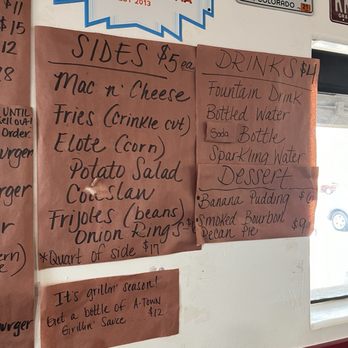 $11
$15
12
8
UNTIL
Sell out!
Order.
urger
rger
r
urger
EST 2013
COLORADO
SIDES $5 ea
Mac n' Cheese
Fries (crinkle cut)
Elote (corn)
Potato Salad
Coleslaw
Frijoles (beans)
Onion Rings
*Quart of side $17
It's grillin' season!
Get a bottle of A-Town
Grillin' Sauce $12
DRINKS $4
Fountain Drink
Bottled Water
Soda Bottle
Sparkling Water
Dessert
*Banana Pudding $6
*Smoked Bourbon
Pecan Pie $9